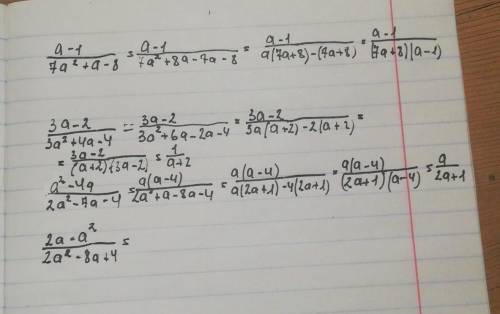 (a-1)/(7a²+a-8) = (a-1)/(7a²+8a-7a-8) = (a-1)/(a(7a+8)-(7a+8)) = (a-1)/((7a+8)(a-1)
(3a-2)/(3a²+4a-4) = (3a-2)/(3a²+6a-2a-4) = (3a-2)/(3a(a+2)-2(a+2)) =
= (3a-2)/((a+2)(3a-2)) = 1/(a+2)
(a²-4a)/(2a²-7a-4) = (a(a-4))/(2a²+a-8a-4) = (a(a-4))/(a(2a+1)-4(2a+1)) = (a(a-4))/((2a+1)(a-4)) = a/(2a+1)
(2a-a²)/(2a²-8a+4) =